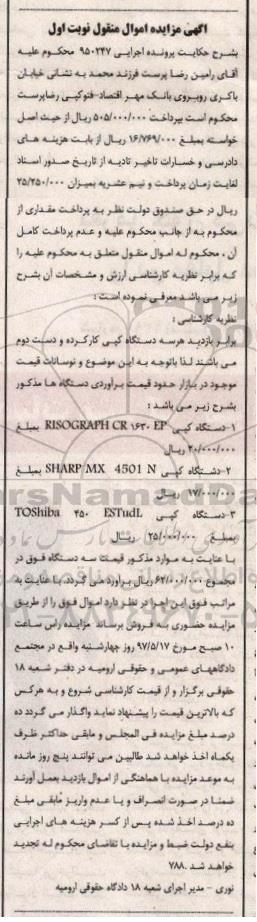 آگهی مزایده اموال منقول نوبت اول
بشرح حکایت پرونده اجرایی ۹۵۰۲۴۷ محکوم علیه
آقای رامین رضا پرست فرزند محمد به نشانی خیابان
باکری روبروی بانک مهر اقتصاد-فتوکپی رضاپرست
محکوم است بپرداخت ۵۰۵/۰۰۰/۰۰۰ ریال از حیث اصل
خواسته بمبلغ ۱۶/۷۶۹/۰۰۰ ریال از بابت هزینه های
دادرسی و خسارات تاخیر تادیه از تاریخ صدور اسناد
لغایت زمان پرداخت و نیم عشریه بمیزان ۲۵/۲۵۰/۰۰۰
ریال در حق صندوق دولت نظر به پرداخت مقداری از
محکوم به از جانب محکوم علیه و عدم پرداخت کامل
آن ، محکوم له اموال منقول متعلق به محکوم علیه را
که برابر نظریه کارشناسی ارزش و مشخصات آن بشرح
زیر می باشد معرفی نموده است :
نظریه کارشناسی :
برابر بازدید هرسه دستگاه کپی کارکرده و دست دوم
می باشند لذا باتوجه به این موضوع و نوسانات قیمت
موجود در بازار حدود قیمت برآوردی دستگاه ها مذکور
بشرح زیر می باشد :
۱-دستگاه کپی RISOGRAPH CR ۱۶۳۰ EP بمبلغ
۲۰/۰۰۰/۰۰۰ ریال
۲-دستگاه کپی SHARP MX 4501 N بمبلغ
۱۷/۰۰۰/۰۰۰ ریال
۳-دستگاه کپی TOShiba ۴۵۰ ESTudL
بمبلغ ۲۵/۰۰۰/۰۰۰ ریال
با عنایت به موارد مذکور قیمت سه دستگاه فوق در
مجموع ۶۲/۰۰۰/۰۰۰ ریال برآورد می گردد. با عنایت به
مراتب فوق این اجرا در نظر دارد اموال فوق را از طریق
مزایده حضوری به فروش برساند مزایده راس ساعت
۱۰ صبح مورخ ۹۷/۵/۱۷ روز چهارشنبه واقع در مجتمع
دادگاههای عمومی و حقوقی ارومیه در دفتر شعبه ۱۸
حقوقی برگزار و از قیمت کارشناسی شروع و به هرکس
که بالاترین قیمت را پیشنهاد نماید واگذار می گردد ده
درصد مبلغ مزایده فی المجلس و مابقی حداکثر ظرف
یکماه اخذ خواهد شد طالبین می توانند پنج روز مانده
به موعد مزایده با هماهنگی از اموال بازدید بعمل آورند
ضمنا در صورت انصراف و یا عدم واریز مابقی مبلغ
ده درصد اخذ شده پس از کسر هزینه های اجرایی
بنفع دولت ضبط و مزایده با تقاضای محکوم له تجدید
خواهد شد .۷۸۸
نوری - مدیر اجرای شعبه ۱۸ دادگاه حقوقی ارومیه